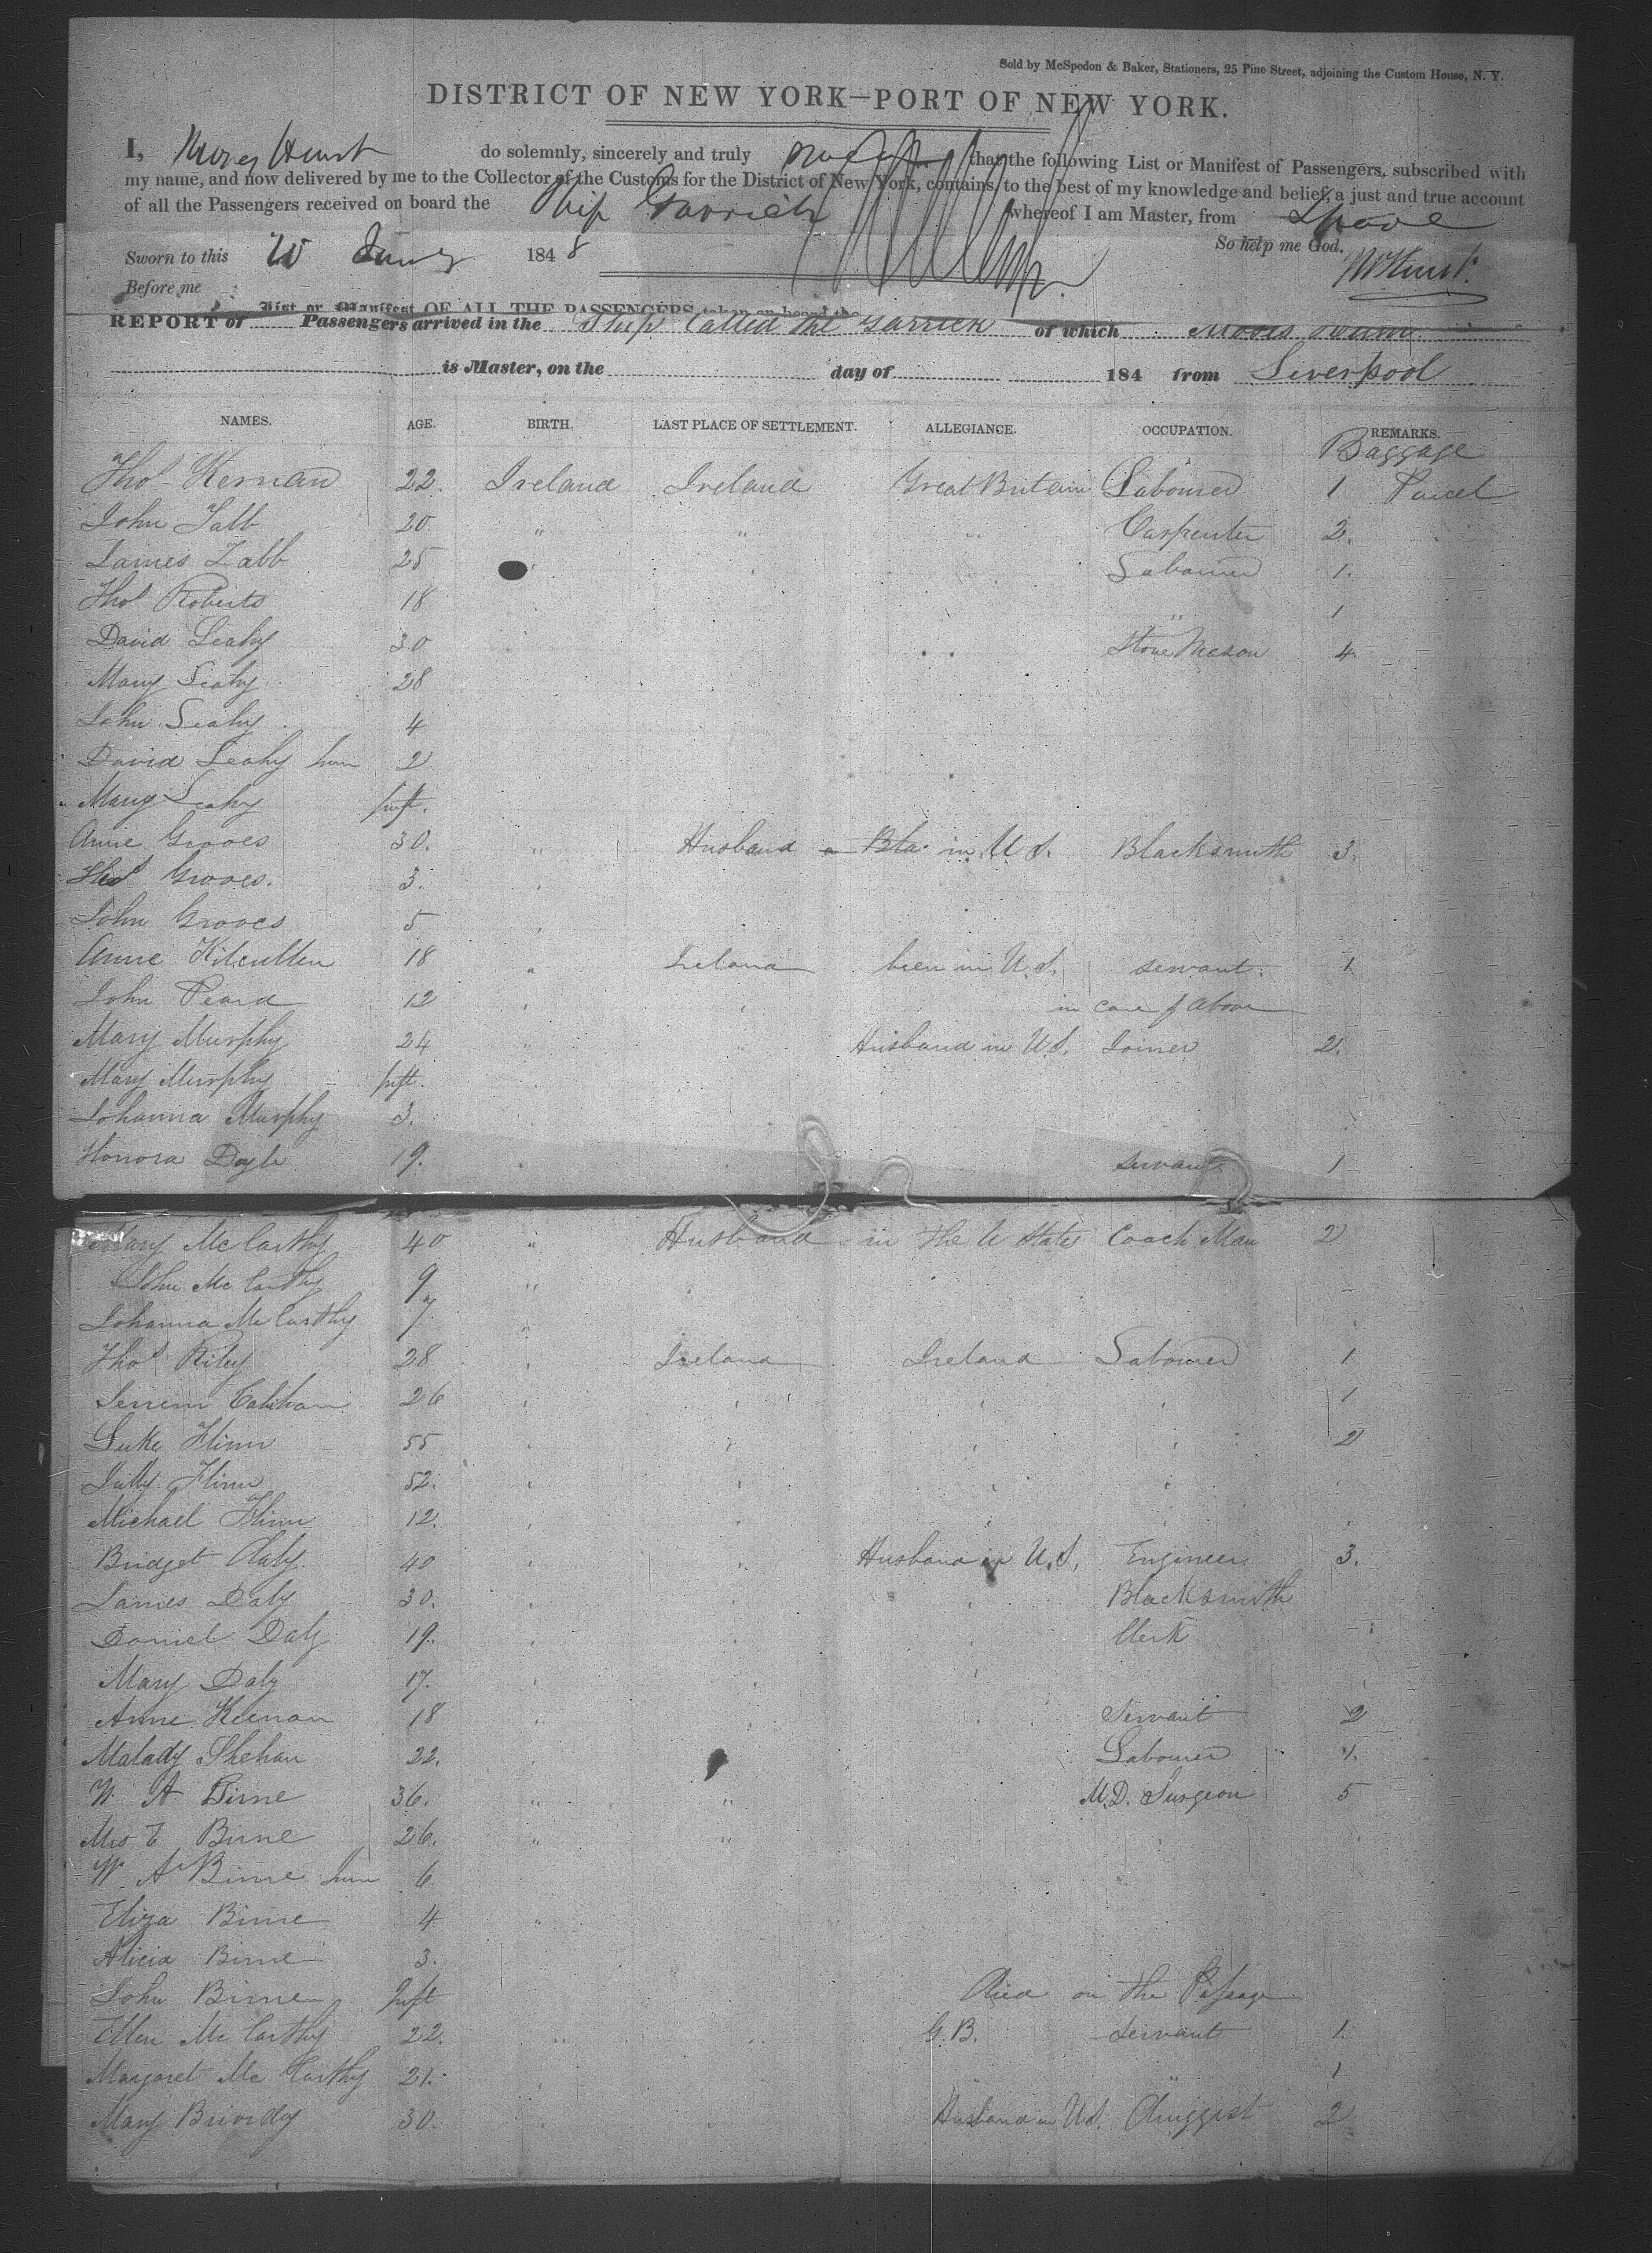 Sold by McSpedon & Baker, Stationers, 25 Pine Street, adjoining the Custom House, N. Y.
DISTRICT OF NEW YORK—PORT OF NEW YORK.
I, Hunt do solemnly, sincerely and truly that the following List or Manifest of Passengers, subscribed with
my name, and now delivered by me to the Collector of the Customs for the District of New York, contains, to the best of my knowledge and belief, a just and true account
of all the Passengers received on board the Ship Garrick whereof I am Master, from Lpool
So help me God.
Sworn to this 1848
Before me
List or Manifest OF ALL THE PASSENGERS taken on board the
REPORT of Passengers arrived in the Ship Called the Garrick of which
is Master, on the day of 184 from Liverpool
NAMES. AGE. BIRTH. LAST PLACE OF SETTLEMENT. ALLEGIANCE. OCCUPATION. REMARKS.
Baggage
Thos Kernan 22. Ireland Ireland Great Britain Labourer 1 Parcel
John 20. " " " Carpenter 2.
James 25 Labourer 1.
Thos Roberts 18 " 1
David Leahy 30 Stone Mason 4
Mary Leahy 28
John Leahy 4
David Leahy Junr 2
Mary Leahy Inft.
Anne Grooves 30. " Husband a Bla in U S. Blacksmith 3.
Thos Grooves. 3.
John Grooves 5
Anne Kilcullen 18 " Ireland been in U.S. servant. 1
John Peard 12 in care of above
Mary Murphy 24 " " Husband in U.S. Joiner 2.
Mary Murphy Inft.
Johanna Murphy 3.
Honora Doyle 19. servant 1
Mary McCarthy 40 " Husband in the U States Coach Man 2
John McCarthy 9 "
Johanna McCarthy 7 "
Thos Riley 28 Ireland Ireland Labourer 1
26 1
Luke Flinn 55 2
Flinn 52.
Michael Flinn 12.
Bridget Daly. 40 Husband in U.S. Engineer 3.
James Daly 30. Blacksmith
Daniel Daly 19. Clerk
Mary Daly 17.
Anne Keenan 18 Servant 2
Malady Shehan 22. Labourer 1.
W. A Birne 36. " " M.D. Surgeon 5
Mrs E Birne 26. " "
W. A Birne Junr 6
Eliza Birne 4 "
Alicia Birne 3.
John Birne Inft Died on the Passage
Ellen McCarthy 22. G.B. Servant 1.
Margaret McCarthy 21. " 1
Mary 30. Husband in U.S. Druggist 2